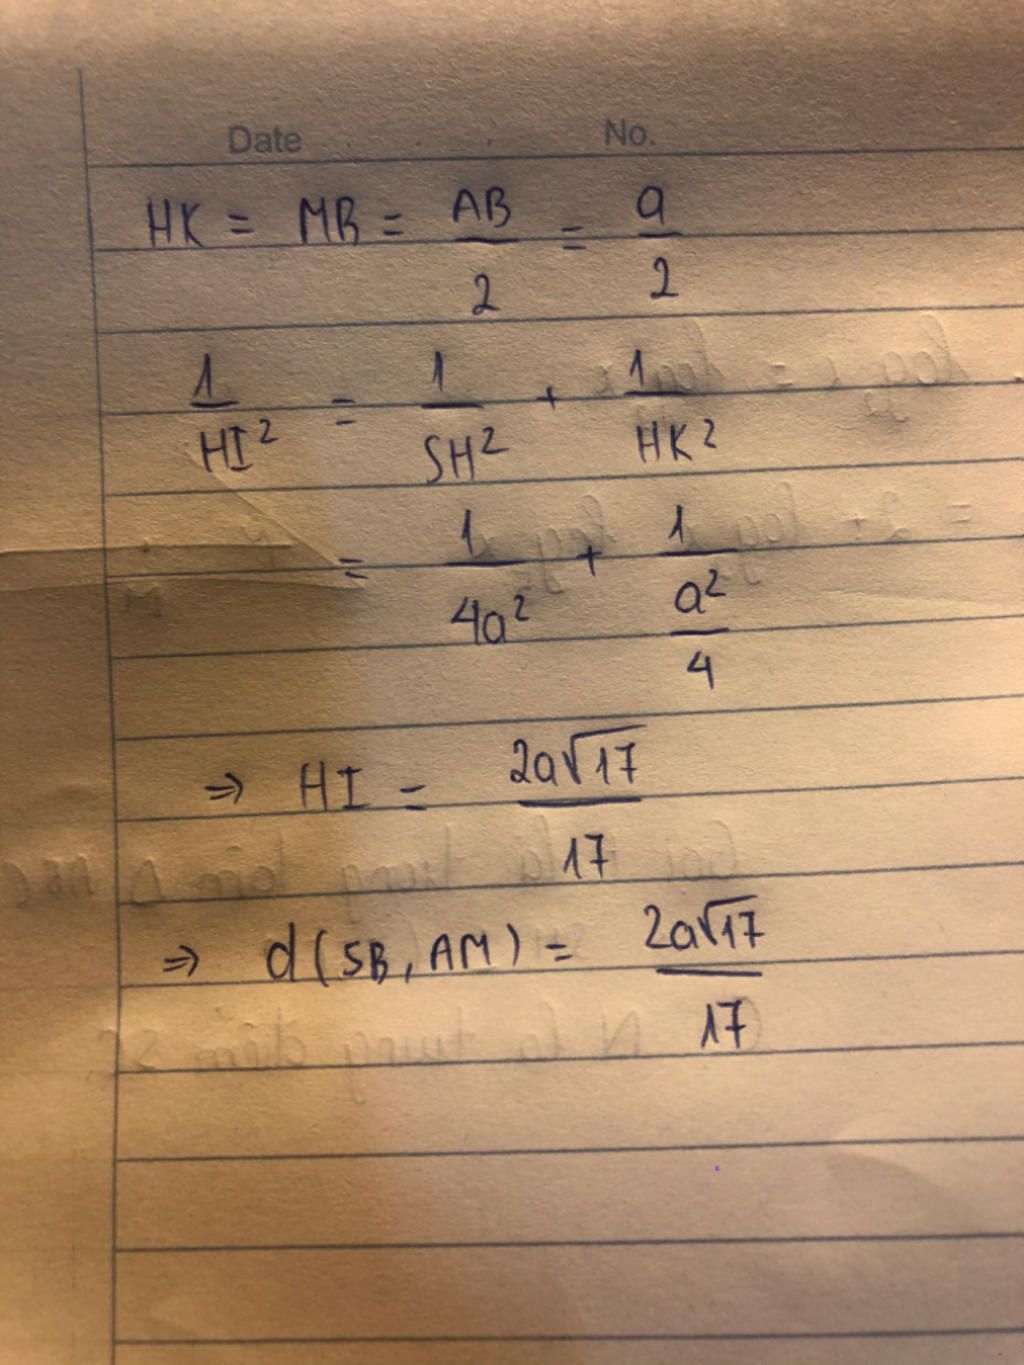 Date No.
HK = MB = AB/2 = a/2
1/HI² = 1/SH² + 1/HK²
= 1/4a² + 1/(a²/4)
⇒ HI = 2a√17/17
⇒ d(SB, AM) = 2a√17/17